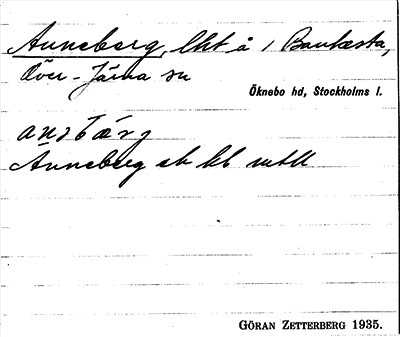 Anneberg, lht å 1 Bankesta,
Över-Järna sn
Öknebo hd, Stockholms l.
Anneberg
GÖRAN ZETTERBERG 1935.